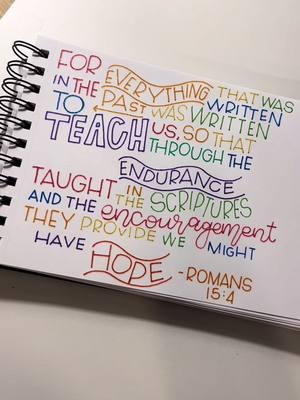 FOR EVERYTHING THAT WAS WRITTEN
IN THE PAST WAS WRITTEN
TO TEACH US, SO THAT
THROUGH THE
ENDURANCE
TAUGHT IN THE SCRIPTURES
AND THE encouragement
THEY PROVIDE WE MIGHT
HAVE HOPE -ROMANS
15:4